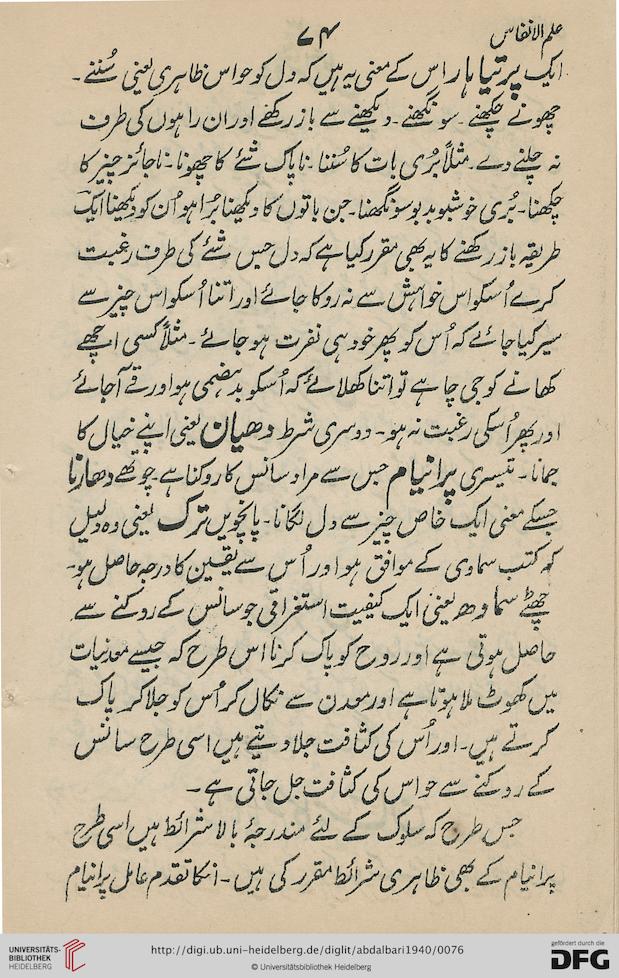 علم الانفاس
۷۴
ایک پرتیاہار اس کے معنی یہ ہیں کہ دل کو حواس ظاہری یعنی سُننے۔
چھونے چکھنے۔ سونگھنے۔ دیکھنے سے باز رکھنے اور ان راہوں کی طرف
نہ چلنے دے۔ مثلاً بُری بات کا سُننا۔ ناپاک شئے کا چھونا۔ ناجائز چیز کا
چکھنا۔ بُری خوشبو بدبو سونگھنا۔ جن باتوں کا دیکھنا بُرا ہو اُن کو دیکھنا ایک
طریقہ باز رکھنے کا یہ بھی مقرر کیا ہے کہ دل جس شئے کی طرف رغبت
کرے اُسکو اس خواہش سے نہ روکا جائے اور اتنا اُسکو اس چیز سے
سیر کیا جائے کہ اُس کو پھر خود ہی نفرت ہو جائے۔ مثلاً کسی اچھے
کھانے کو جی چاہے تو اتنا کھلائے کہ اُسکو بدہضمی ہو اور قے آجائے
اور پھر اُسکی رغبت نہ ہو۔ دوسری شرط دھیان یعنی اپنے خیال کا
جمانا۔ تیسری پرانیام جس سے مراد سانس کا روکنا ہے۔ چوتھے دھارنا
جسکے معنی ایک خاص چیز سے دل لگانا۔ پانچویں ترک یعنی وہ دلیل
کہ کتب سماوی کے موافق ہو اور اُس سے یقین کا درجہ حاصل ہو۔
چھٹے سمادھ یعنی ایک کیفیت استغراقی جو سانس کے روکنے سے
حاصل ہوتی ہے اور روح کو پاک کرنا اس طرح کہ جیسے معدنیات
میں کھوٹ ملا ہوتا ہے اور معدن سے نکال کر اُس کو جلا کر پاک
کرتے ہیں۔ اور اُس کی کثافت جلا دیتے ہیں اسی طرح سانس
کے روکنے سے حواس کی کثافت جل جاتی ہے۔
جس طرح کہ سلوک کے لئے مندرجۂ بالا شرائط ہیں اسی طرح
پرانیام کے بھی ظاہری شرائط مقرر کی ہیں۔ انکا تقدم عامل پرانیام
UNIVERSITÄTS-
BIBLIOTHEK
HEIDELBERG
http://digi.ub.uni-heidelberg.de/diglit/abdalbari1940/0076
© Universitätsbibliothek Heidelberg
gefördert durch die
DFG